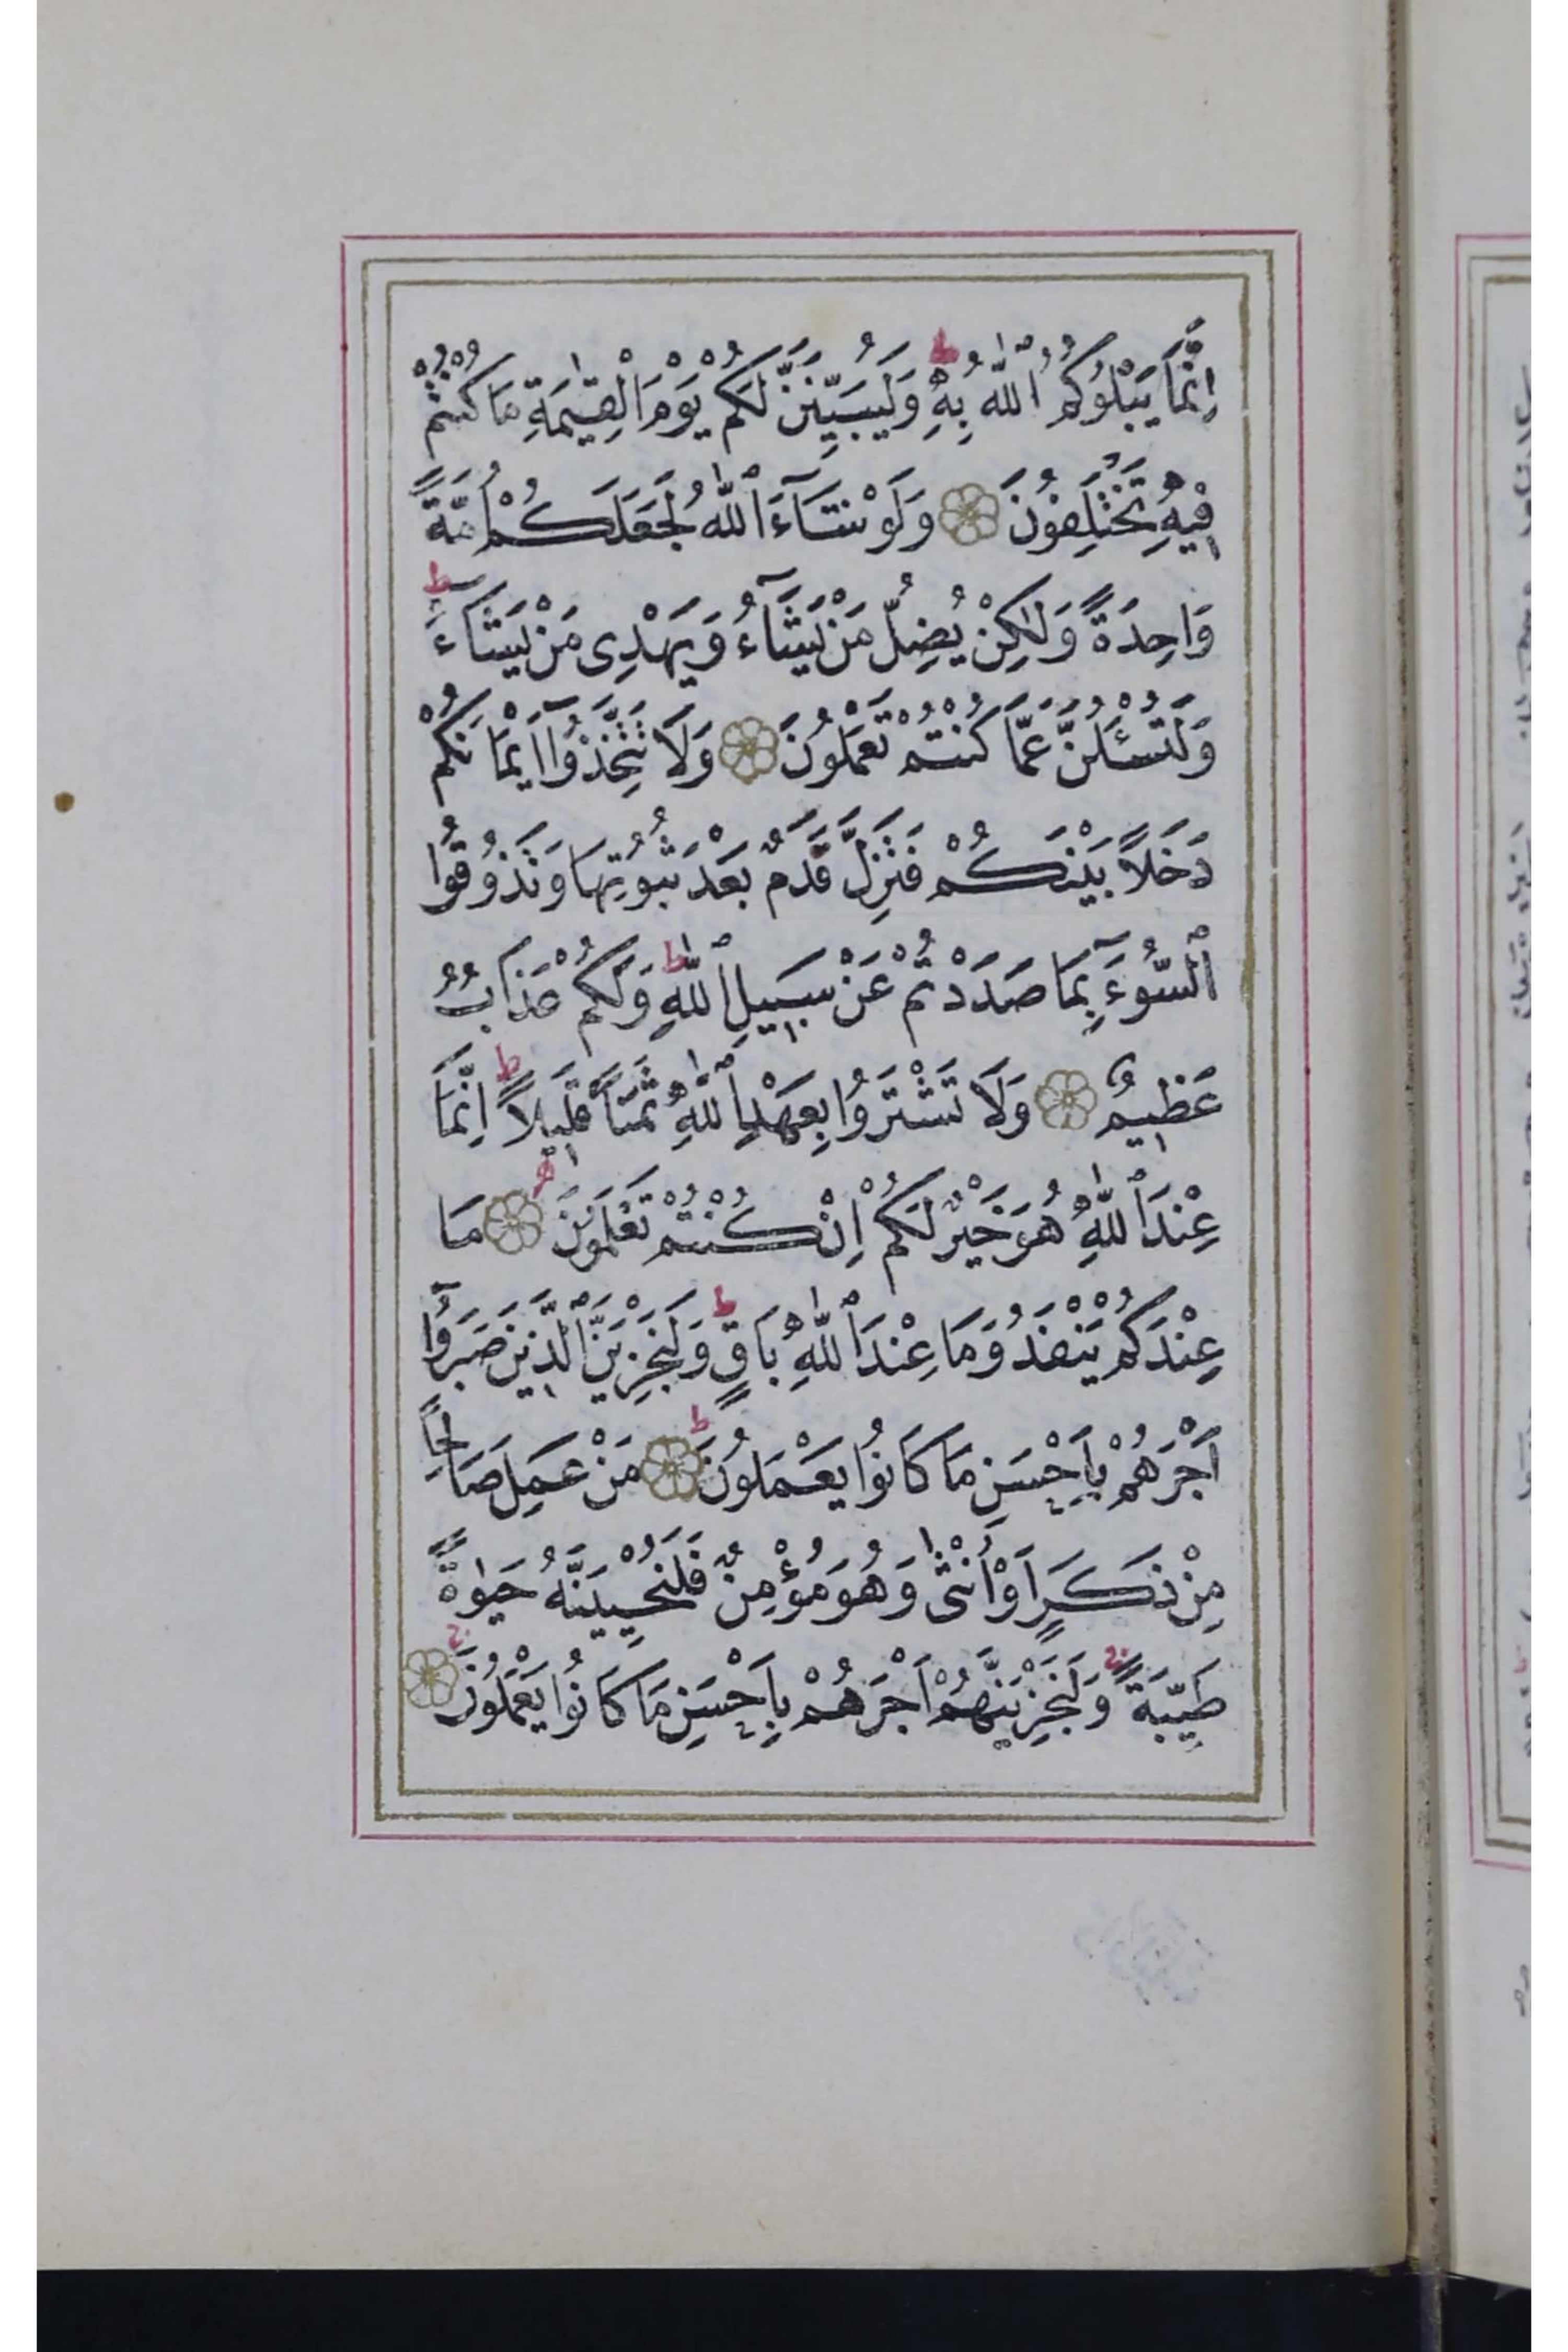 اِنَّمَا يَبْلُوكُمُ ٱللّٰهُ بِهٖ ط وَلَيُبَيِّنَنَّ لَكُمْ يَوْمَ الْقِيٰمَةِ مَا كُنْتُمْ
فِيهِ تَخْتَلِفُونَ وَلَوْ شَآءَ ٱللّٰهُ لَجَعَلَكُمْ اُمَّةً
وَاحِدَةً وَلٰكِنْ يُضِلُّ مَنْ يَشَآءُ وَيَهْدِى مَنْ يَشَآءُ ط
وَلَتُسْـَٔلُنَّ عَمَّا كُنْتُمْ تَعْمَلُونَ وَلَا تَتَّخِذُوٓا اَيْمَانَكُمْ
دَخَلًا بَيْنَكُمْ فَتَزِلَّ قَدَمٌ بَعْدَ ثُبُوتِهَا وَتَذُوقُوا
ٱلسُّوٓءَ بِمَا صَدَدْتُمْ عَنْ سَبِيلِ ٱللّٰهِ ط وَلَكُمْ عَذَابٌ
عَظِيمٌ وَلَا تَشْتَرُوا بِعَهْدِ ٱللّٰهِ ثَمَنًا قَلِيلًا ط اِنَّمَا
عِنْدَ ٱللّٰهِ هُوَ خَيْرٌ لَكُمْ اِنْ كُنْتُمْ تَعْلَمُونَ مَا
عِنْدَكُمْ يَنْفَدُ وَمَا عِنْدَ ٱللّٰهِ بَاقٍ ط وَلَنَجْزِيَنَّ ٱلَّذِينَ صَبَرُوٓا
اَجْرَهُمْ بِاَحْسَنِ مَا كَانُوا يَعْمَلُونَ ط مَنْ عَمِلَ صَالِحًا
مِنْ ذَكَرٍ اَوْ اُنْثٰى وَهُوَ مُؤْمِنٌ فَلَنُحْيِيَنَّهُ حَيٰوةً
طَيِّبَةً ج وَلَنَجْزِيَنَّهُمْ اَجْرَهُمْ بِاَحْسَنِ مَا كَانُوا يَعْمَلُونَ